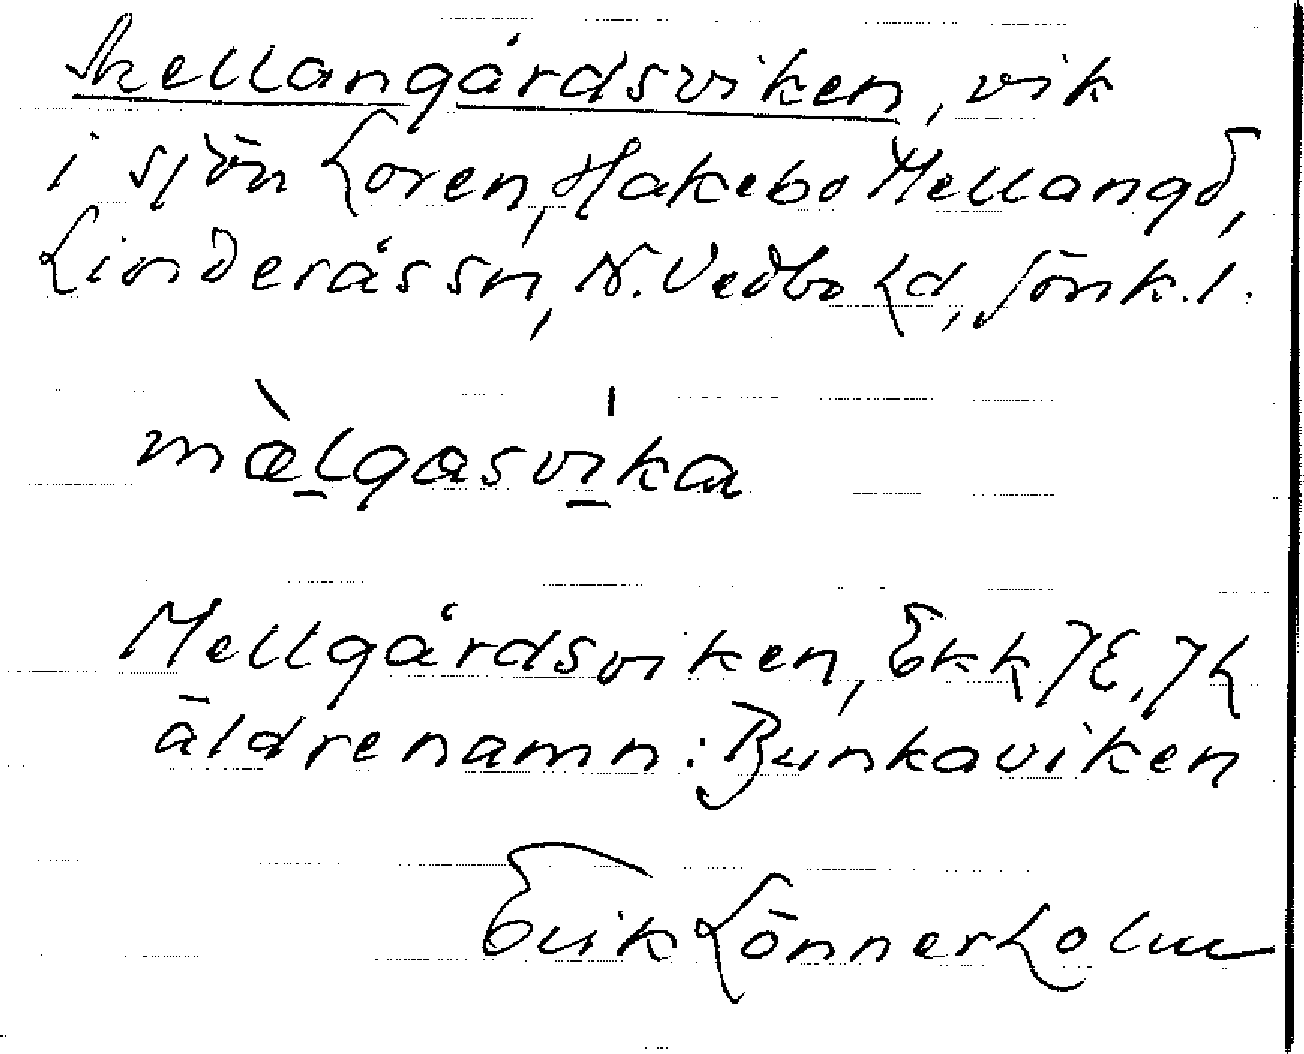 Mellangårdsviken, vik
i sjön Loren, Hakebo Mellangd,
Linderås sn, N. Vedbo hd, Jönk. l.
mæ̀lgasvika
Mellgårdsviken, Ekk
äldre namn: Bunkaviken
Erik Lönnerholm